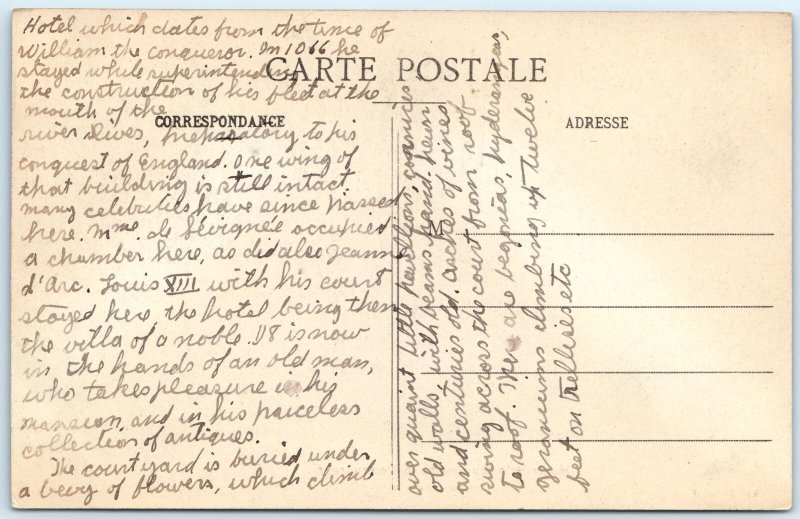 Hotel which dates from the time of
William the conqueror. In 1066 he
stayed while superintending
the construction of his fleet at the
mouth of the
river Dives, preparatory to his
conquest of England. One wing of
that building is still intact.
many celebrities have since passed
here. Mme. de Sévignée occupied
a chamber here, as did also Jeanne
d'Arc. Louis XIII with his court
stayed here, the hotel being then
the villa of a noble. It is now
in the hands of an old man,
who takes pleasure in his
mansion, and in his priceless
collection of antiques.
The courtyard is buried under
a bevy of flowers, which climb
CARTE POSTALE
CORRESPONDANCE
ADRESSE
M
over quaint little pavillions, cornices
old walls, with beams hand-hewn
and centuries old. Arches of vines
swing across the court from roof
to roof. There are begonias, hyderangeas,
geraniums climbing up twelve
feet on trellises etc